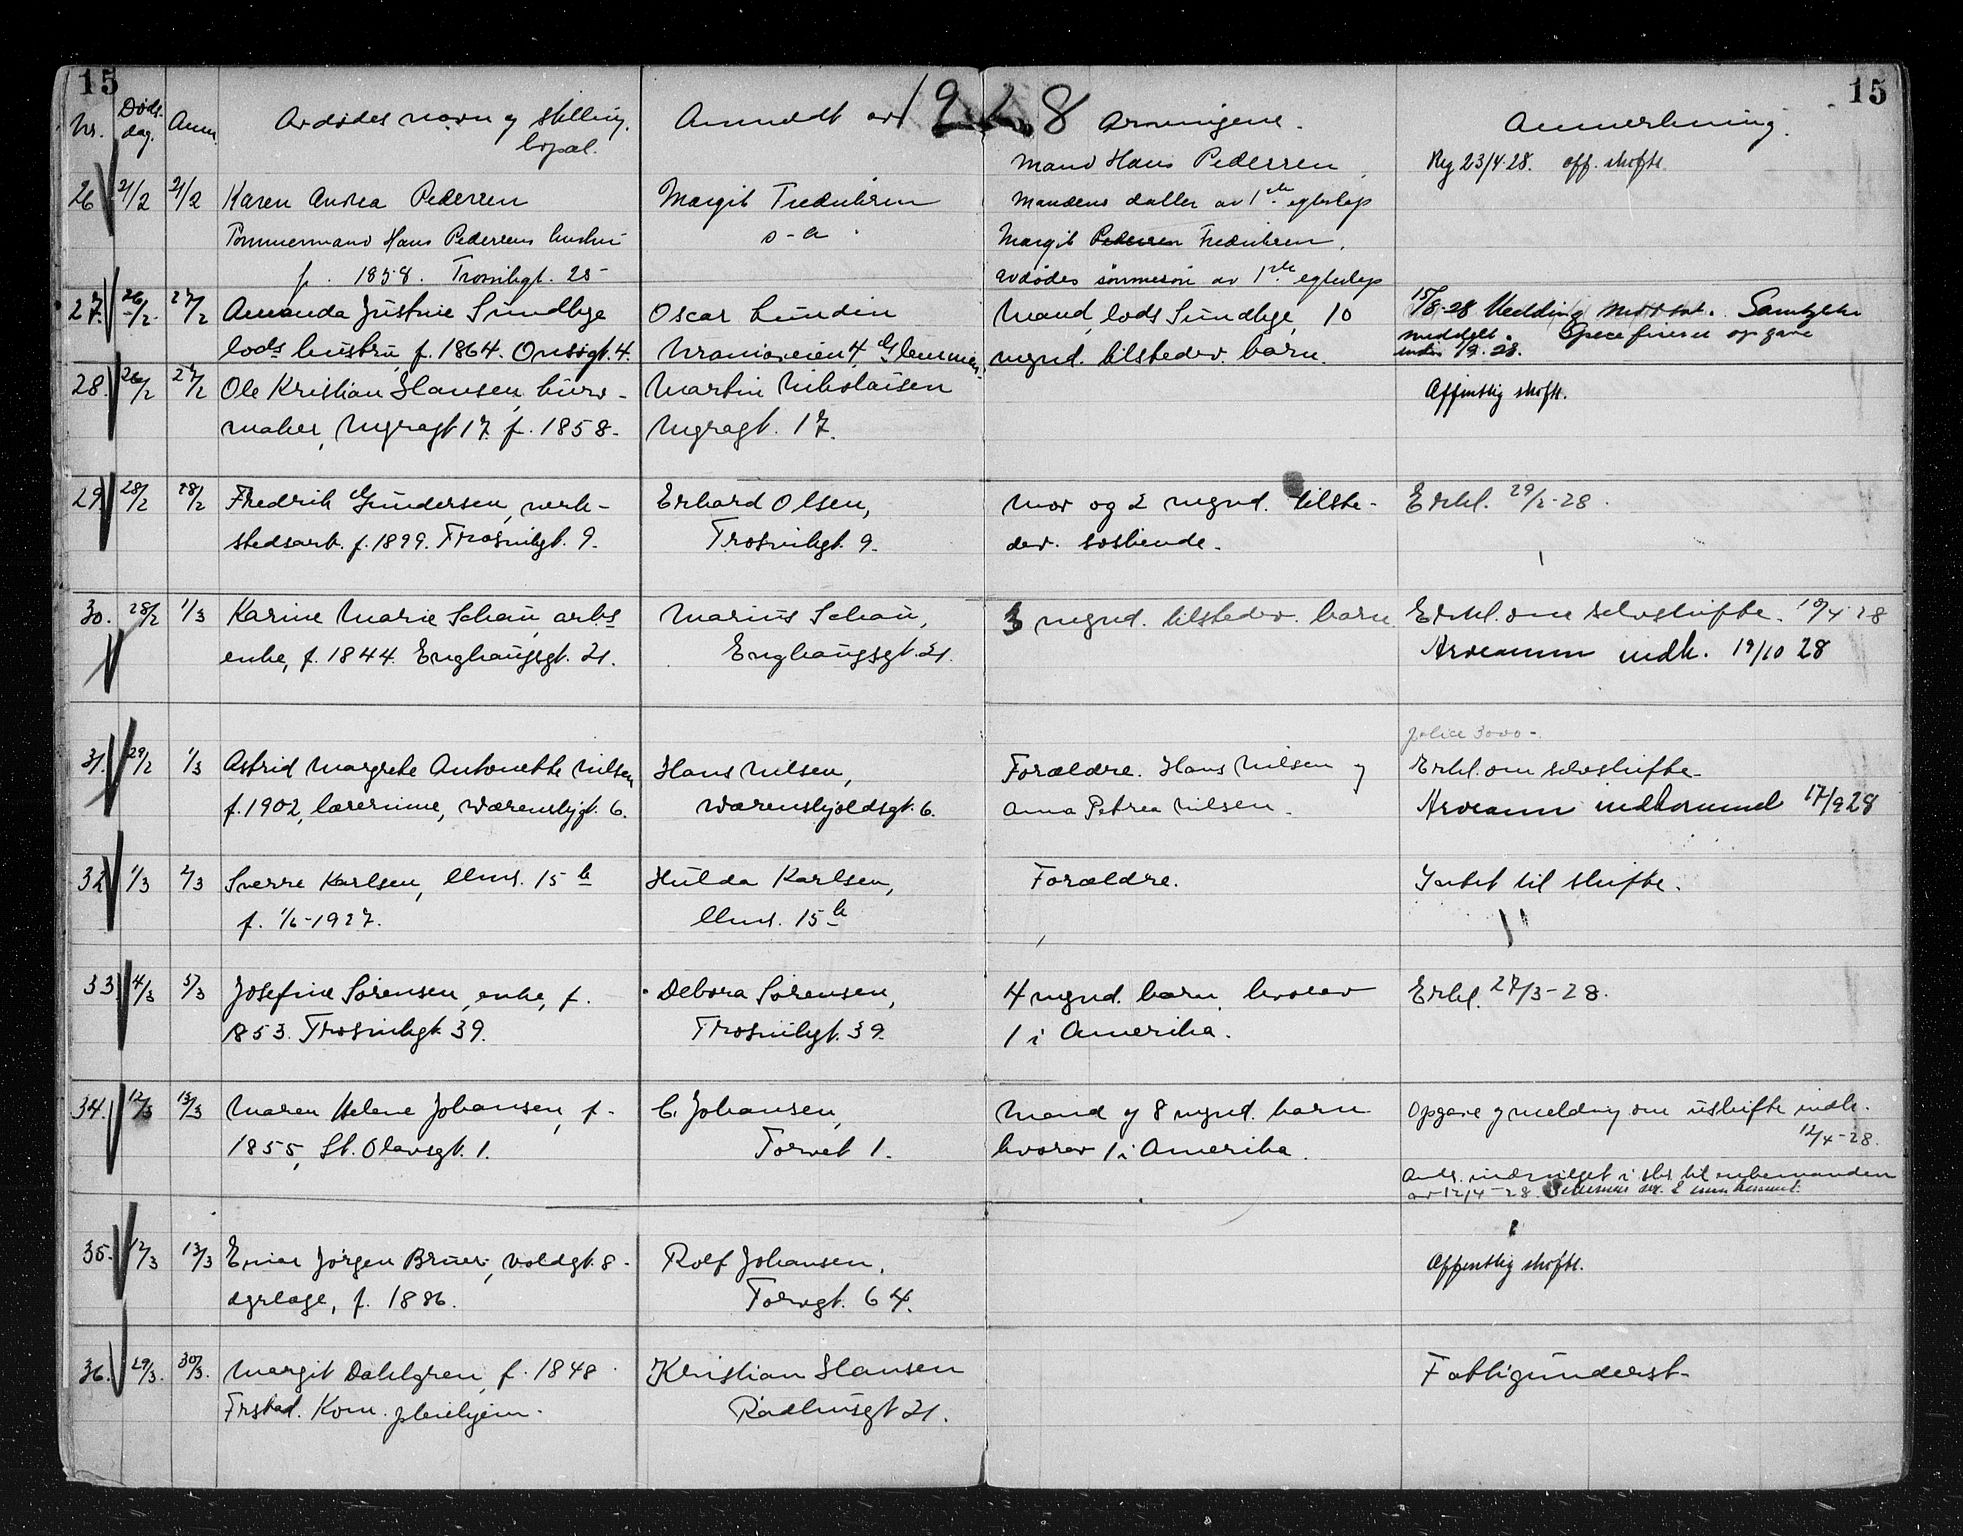 15
1928
15
Nr. Døds-dag. Anm. Avdødes navn og stilling, bopæl. Anmeldt av Arvingene. Anmerkning.
Mand Hans Pedersen, Reg 23/4 28. off. skifte
26 21/2 21/2 Karen Andrea Pedersen Margit Fredriksen Mandens datter av 1ste egteskap
Tømmermand Hans Pedersens hustru s-a. Margit Pedersen Fredriksen.
f. 1858. Trosvikgt. 25 avdødes sønnesøn av 1ste egteskap
27. 26/2 27/2 Amanda Justine Sundbye Oscar Lundin Mand, lods Sundbye, 10 15/8-28 Samtykke
lods hustru, f. 1864. Onsøgt. 4. Uranioveien 4, Glemmen mynd. tilstedev. barn. meddelt. Specificert opgave
inden 1/9. 28.
28. 26/2 27/2 Ole Kristian Hansen, burs- Martin Nikolaisen Offentlig skifte.
maker, Nygaagt 17. f. 1858. Nygaagt. 17.
29. 28/2 28/2 Fredrik Gundersen, verk- Erhard Olsen, Mor og 2 mynd. tilste- Erkl. 29/2-28.
stedsarb. f. 1899. Trosvikgt. 9. Trosvikgt. 9. dev. søskende.
30. 28/2 1/3 Karine Marie Schau, arbs Marius Schau, 3 mynd. tilstedev. barn Erkl. om selvskifte. 10/4 28
enke, f. 1844. Enghaugsgt. 21. Enghaugsgt. 21. Arveanm indk. 19/10 28
police 3000-
31. 29/2 1/3 Astrid Margrete Antonette Nilsen Hans Nilsen, Forældre. Hans Nilsen og Erkl. om selvskifte.
f. 1902, lærerinne, Wærenskjgt. 6. Wærenskjoldsgt. 6. Anna Petrea Nilsen. Arveanm indkommet 17/9 28
32 1/3 2/3 Sverre Karlsen, 15 b Hulda Karlsen, Forældre. Intet til skifte.
f. 1/6-1927. 15 b
33 4/3 5/3 Josefine Sørensen, enke, f. Debora Sørensen, 4 mynd. barn, hvorav Erkl. 27/3-28.
1853. Trosvikgt. 39. Trosvikgt. 39. 1 i Amerika.
34. 12/3 13/3 Maren Helene Johansen, f. C. Johansen, Mand og 8 mynd. barn Opgave og melding om uskifte indk.
1855, St. Olavsgt. 1. Torvet 1. hvorav 1 i Amerika. 12/4-28.
til enkemanden
av 12/4-28.
35. 12/3 13/3 Einar Jørgen Bruer, Voldgt. 8. Rolf Johansen, Offentlig skifte.
dyrlæge, f. 1886. Torvgt. 64.
36. 29/3. 30/3. Margit Dahlgren, f. 1848 Kristian Hansen Fattigunderst.
Frstad. Kom. pleiehjem. Raadhusgt 21.